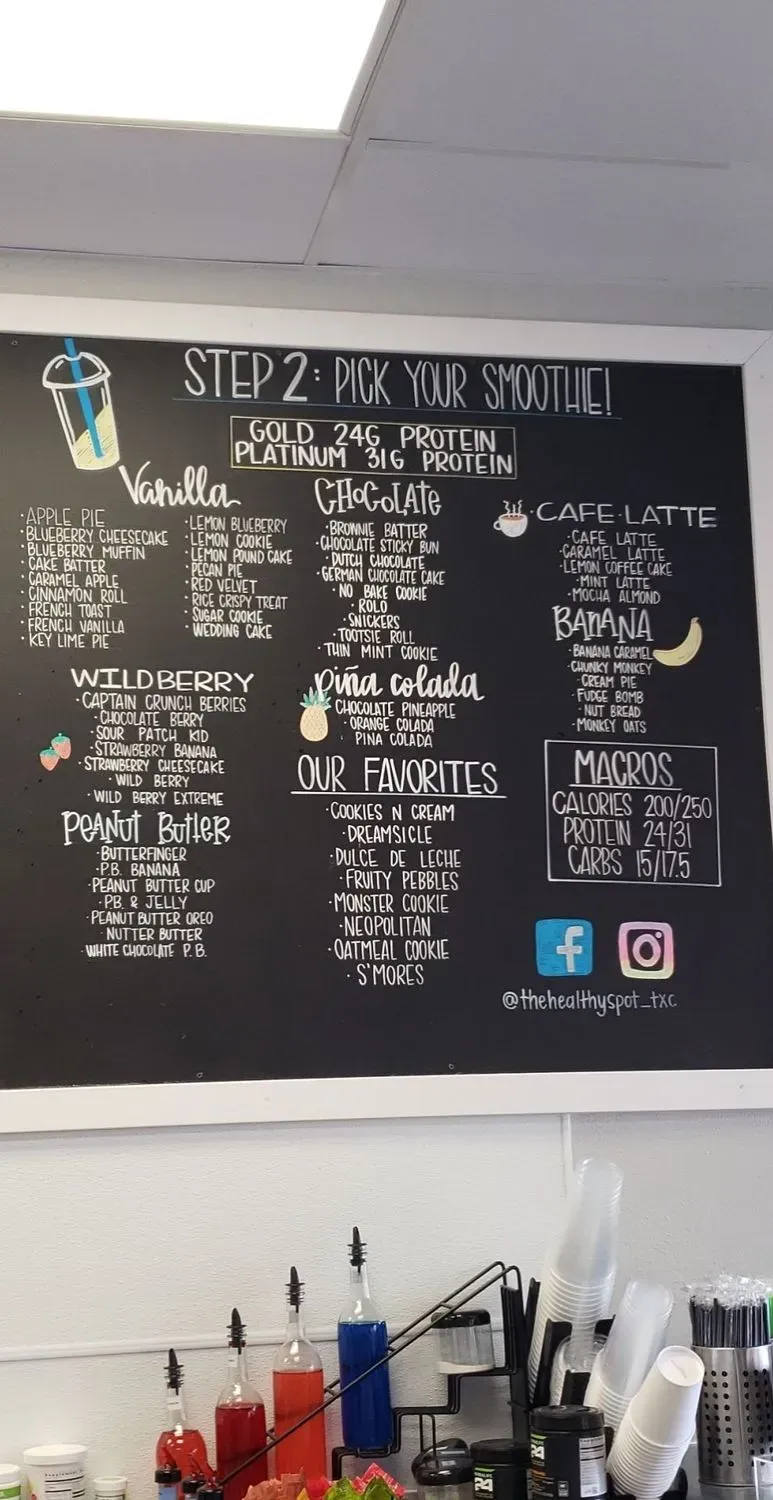 STEP 2: PICK YOUR SMOOTHIE!
GOLD 24G PROTEIN
PLATINUM 31G PROTEIN
Vanilla
· APPLE PIE
· BLUEBERRY CHEESECAKE
· BLUEBERRY MUFFIN
· CAKE BATTER
· CARAMEL APPLE
· CINNAMON ROLL
· FRENCH TOAST
· FRENCH VANILLA
· KEY LIME PIE
· LEMON BLUEBERRY
· LEMON COOKIE
· LEMON POUND CAKE
· PECAN PIE
· RED VELVET
· RICE CRISPY TREAT
· SUGAR COOKIE
· WEDDING CAKE
CHOCOLATE
· BROWNIE BATTER
· CHOCOLATE STICKY BUN
· DUTCH CHOCOLATE
· GERMAN CHOCOLATE CAKE
· NO BAKE COOKIE
· ROLO
· SNICKERS
· TOOTSIE ROLL
· THIN MINT COOKIE
· CAFE · LATTE
· CAFE LATTE
· CARAMEL LATTE
· LEMON COFFEE CAKE
· MINT LATTE
· MOCHA ALMOND
BANANA
· BANANA CARAMEL
· CHUNKY MONKEY
· CREAM PIE
· FUDGE BOMB
· NUT BREAD
· MONKEY OATS
WILDBERRY
· CAPTAIN CRUNCH BERRIES
· CHOCOLATE BERRY
· SOUR PATCH KID
· STRAWBERRY BANANA
· STRAWBERRY CHEESECAKE
· WILD BERRY
· WILD BERRY EXTREME
piña colada
CHOCOLATE PINEAPPLE
· ORANGE COLADA
PINA COLADA
PEANUT BUTTER
· BUTTERFINGER
· P.B. BANANA
· PEANUT BUTTER CUP
· P.B. & JELLY
· PEANUT BUTTER OREO
· NUTTER BUTTER
· WHITE CHOCOLATE P.B.
OUR FAVORITES
· COOKIES N CREAM
· DREAMSICLE
· DULCE DE LECHE
· FRUITY PEBBLES
· MONSTER COOKIE
· NEOPOLITAN
· OATMEAL COOKIE
· S'MORES
MACROS
CALORIES 200/250
PROTEIN 24/31
CARBS 15/17.5
@thehealthyspot_txc
24
24